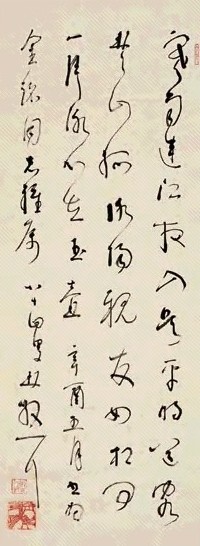 寒雨連江夜入吴平明送客
楚山孤洛陽親友如相問
一片冰心在玉壺 辛酉五月書為
金 同志雅属 八十四叟林散之